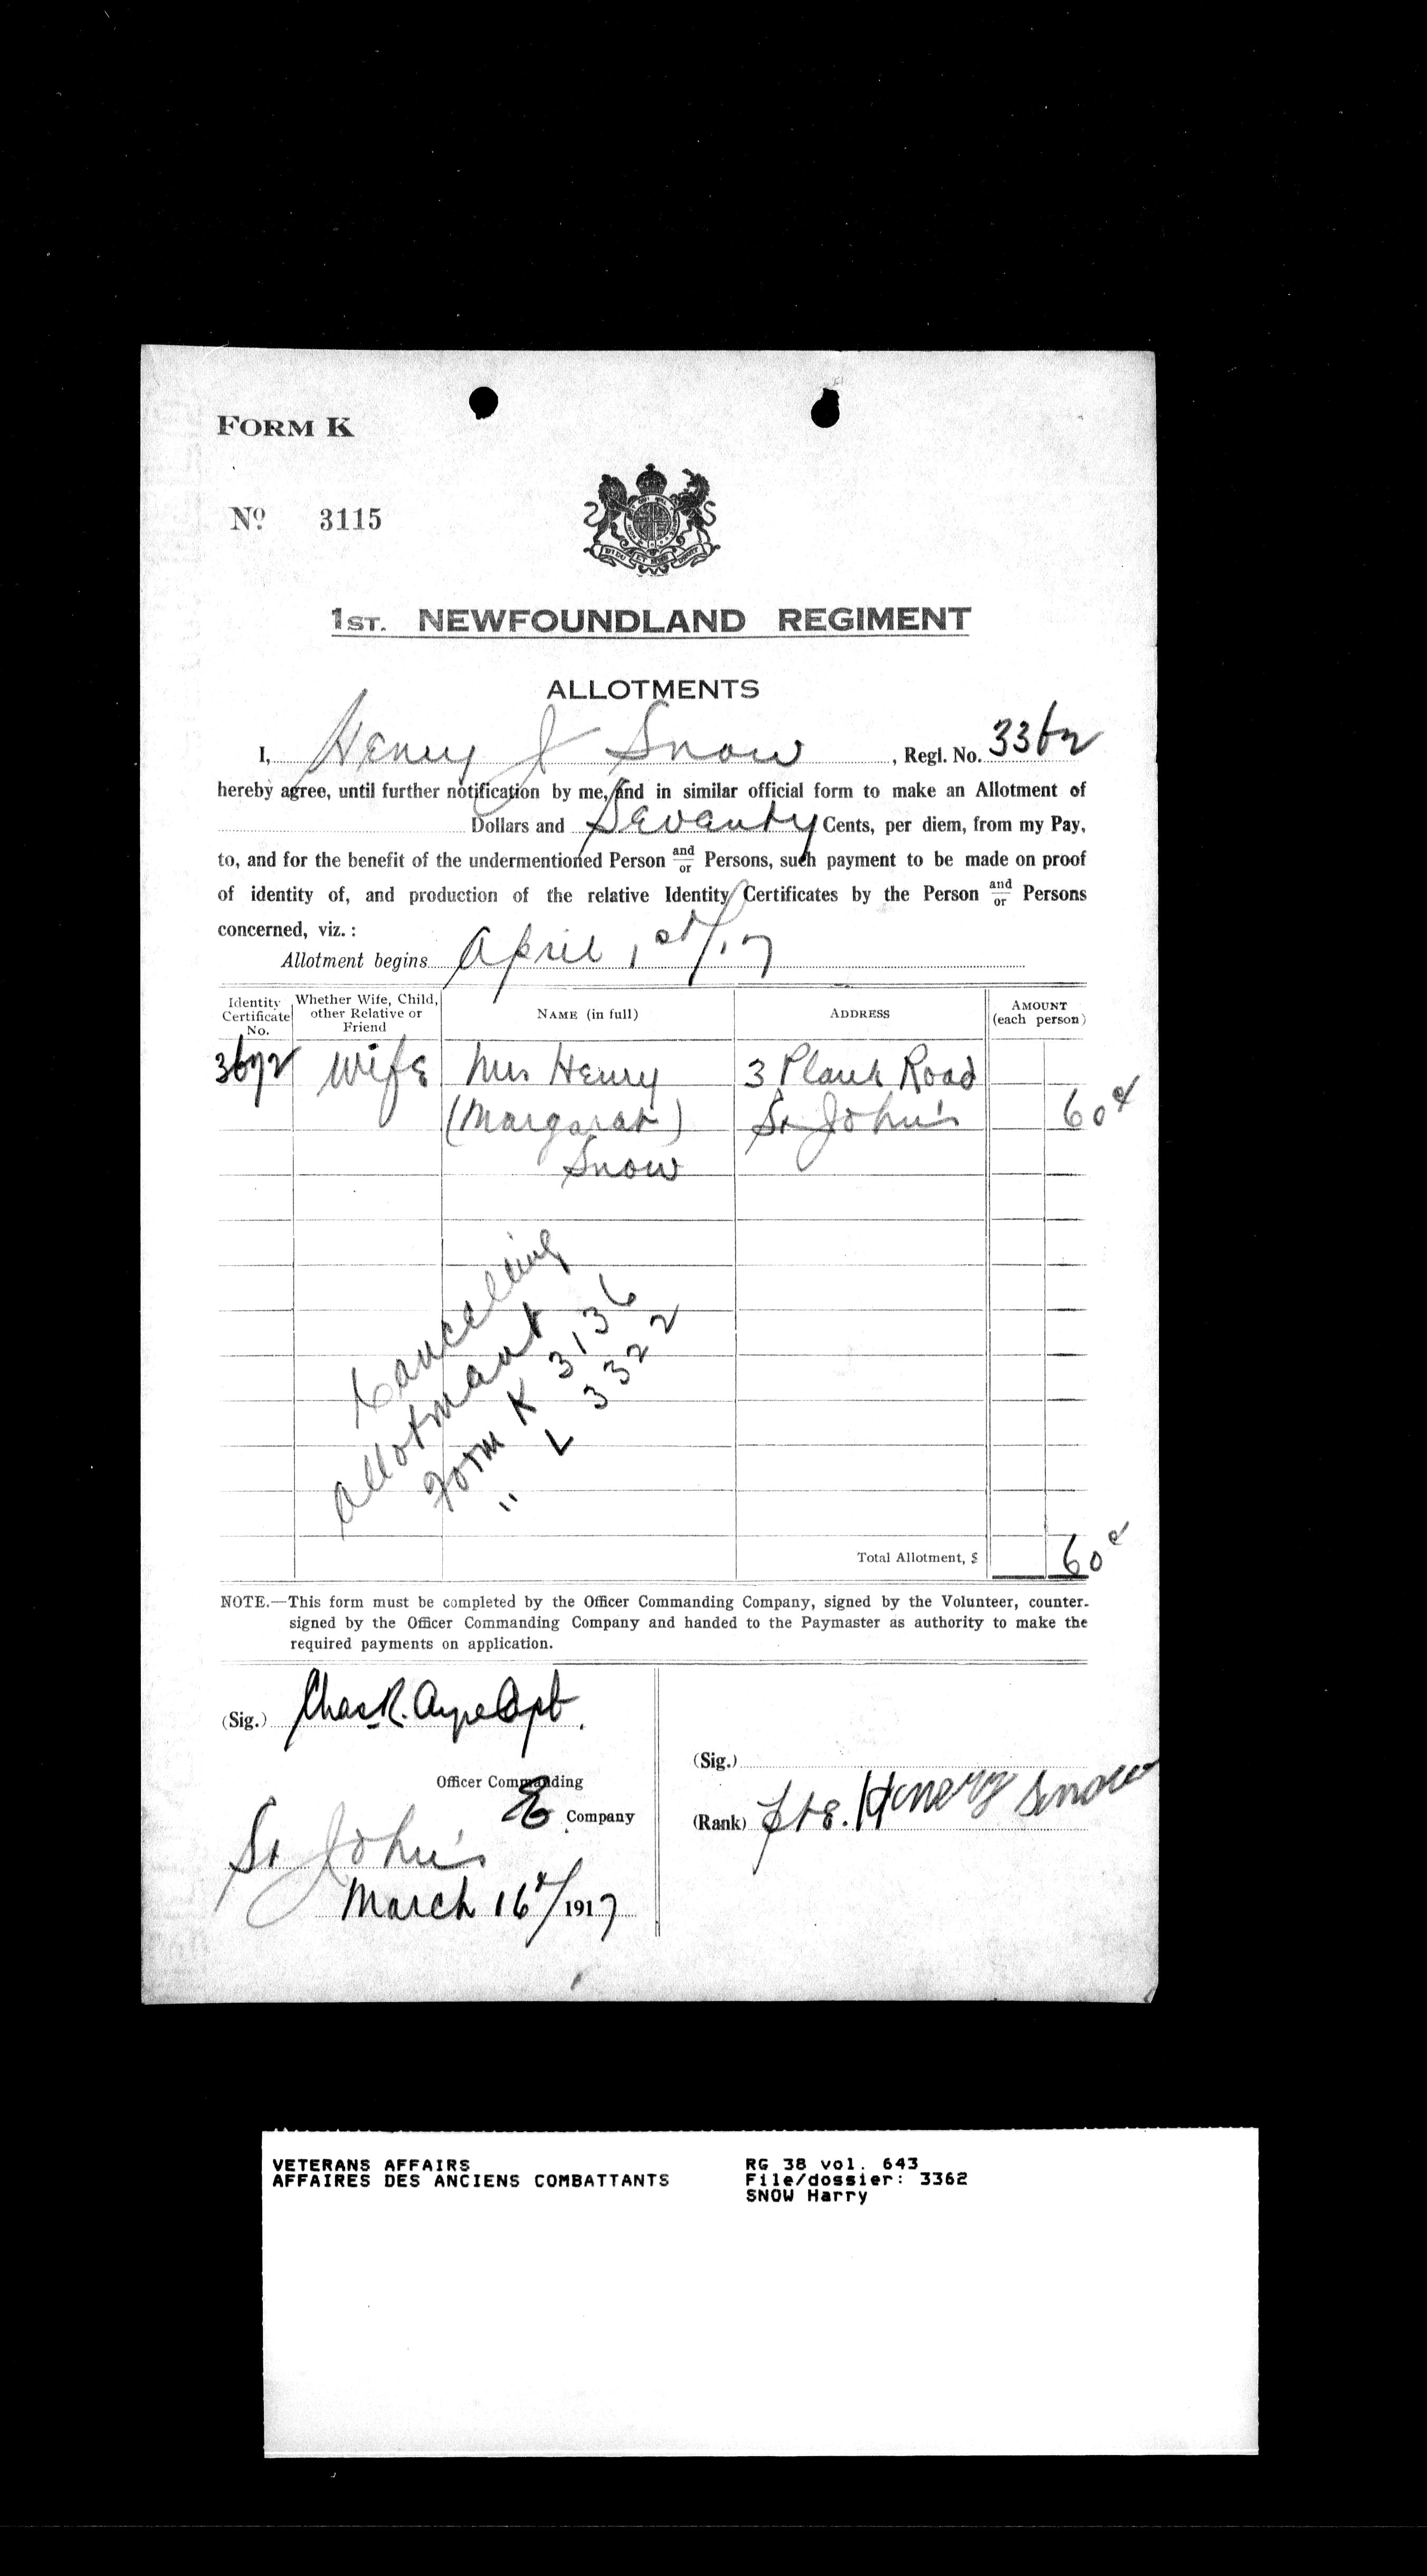 FORM K
Nº 3115
1ST. NEWFOUNDLAND REGIMENT
ALLOTMENTS
I, Henry J Snow, Regl. No. 3362
hereby agree, until further notification by me, and in similar official form to make an Allotment of
Dollars and Sevanty Cents, per diem, from my Pay,
to, and for the benefit of the undermentioned Person and/or Persons, such payment to be made on proof
of identity of, and production of the relative Identity Certificates by the Person and/or Persons
concerned, viz.:
Allotment begins April 1st/17
Identity Certificate No.
Whether Wife, Child, other Relative or Friend
NAME (in full)
ADDRESS
AMOUNT (each person)
3672 Wife Mrs Henry 3 Plank Road
(Margarat) St John's 60¢
Snow
Cancelling
allotmant
Form K 3136
" L 3322
Total Allotment, $ 60¢
NOTE.—This form must be completed by the Officer Commanding Company, signed by the Volunteer, counter-
signed by the Officer Commanding Company and handed to the Paymaster as authority to make the
required payments on application.
(Sig.) Chas R. Ayre Capt.
Officer Commanding
E Company
St John's
March 16th/1917
(Sig.)
(Rank) Pte. Henery Snow
VETERANS AFFAIRS
AFFAIRES DES ANCIENS COMBATTANTS
RG 38 vol. 643
File/dossier: 3362
SNOW Harry